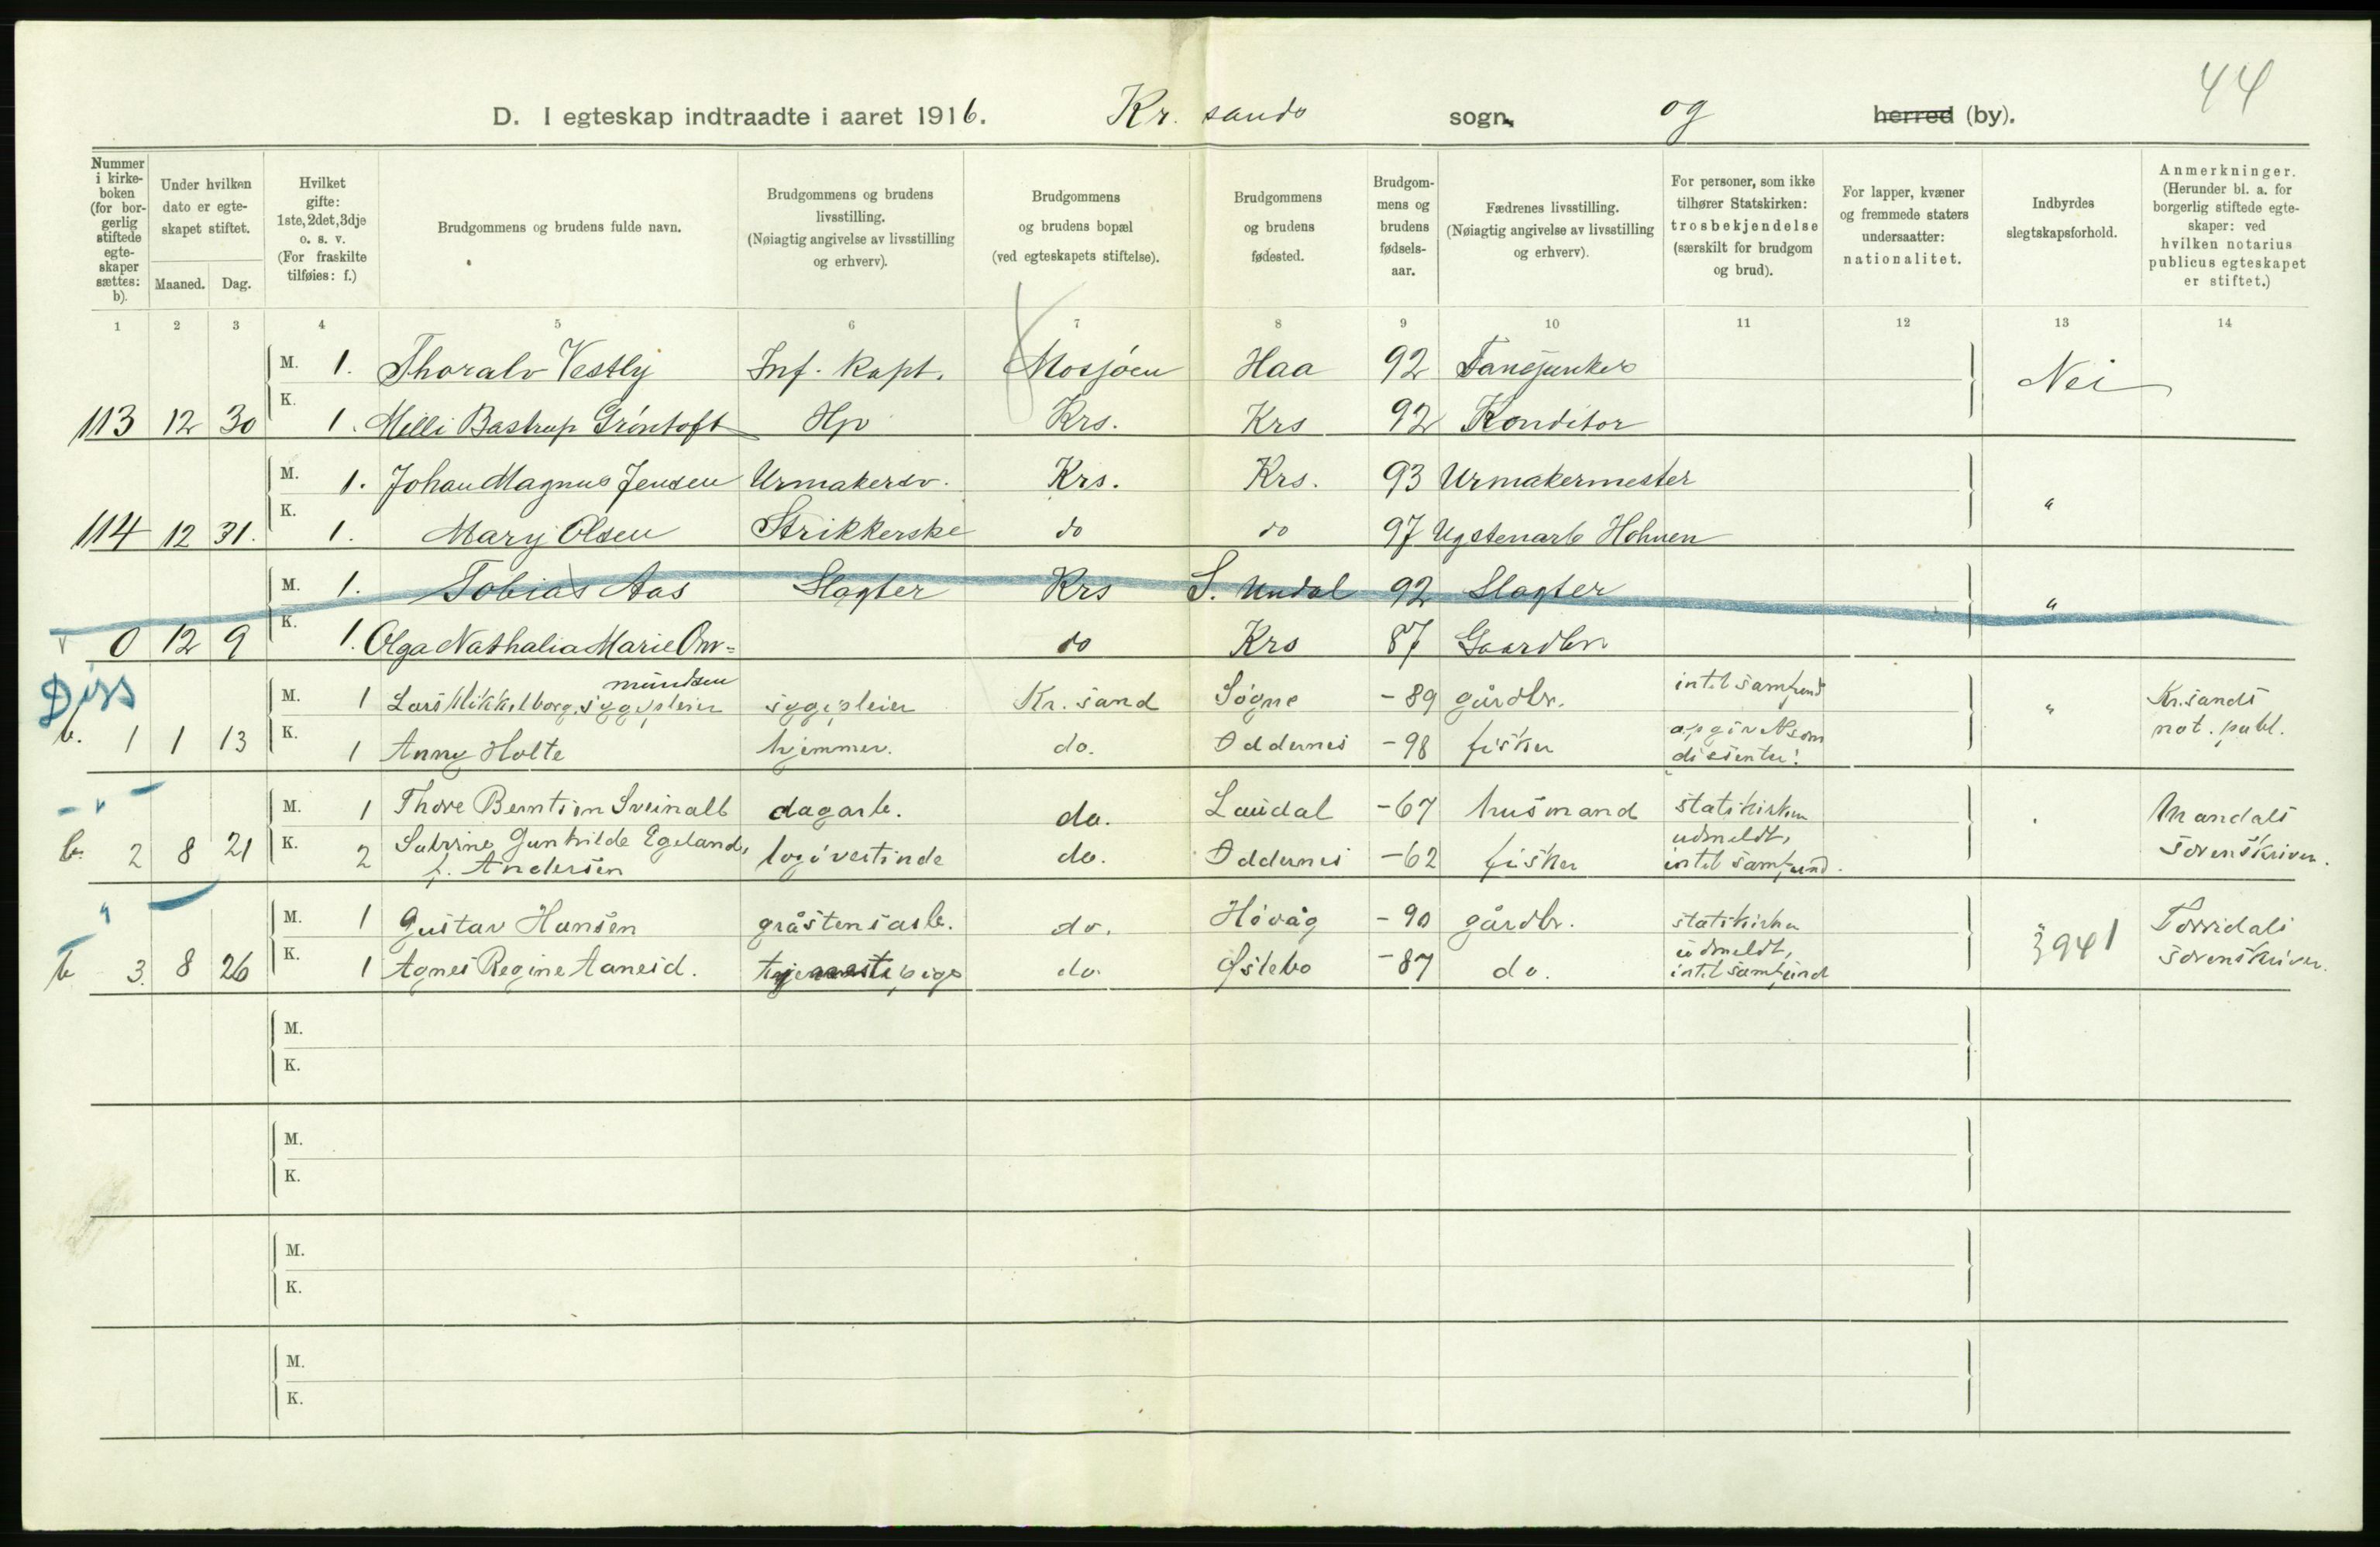 44
D. I egteskap indtraadte i aaret 1916. Kr. sands sogn. og herred (by).
Nummer i kirke-boken (for bor-gerlig stiftede egte-skaper sættes: b).
Under hvilken dato er egte-skapet stiftet.
Maaned. Dag.
Hvilket gifte: 1ste, 2det, 3dje o. s. v. (For fraskilte tilføies: f.)
Brudgommens og brudens fulde navn.
Brudgommens og brudens livsstilling. (Nøiagtig angivelse av livsstilling og erhverv).
Brudgommens og brudens bopæl (ved egteskapets stiftelse).
Brudgommens og brudens fødested.
Brudgom-mens og brudens fødsels-aar.
Fædrenes livsstilling. (Nøiagtig angivelse av livsstilling og erhverv).
For personer, som ikke tilhører Statskirken: trosbekjendelse (særskilt for brudgom og brud).
For lapper, kvæner og fremmede staters undersaatter: nationalitet.
Indbyrdes slegtskapsforhold.
Anmerkninger. (Herunder bl. a. for borgerlig stiftede egte-skaper: ved hvilken notarius publicus egteskapet er stiftet.)
1 2 3 4 5 6 7 8 9 10 11 12 13 14
M. 1. Thoralv Vestly Inf. kapt. Mosjøen Haa 92 Fanejunker Nei
113 12 30 K. 1. Milli Bastrup Grøntoft Hp Krs. Krs 92 Konditor
M. 1. Johan Magnus Jensen Urmakersv. Krs. Krs. 93 Urmakermester "
114 12 31. K. 1. Mary Olsen Strikkerske do do 97 Ugstenarb Hohnen
M. 1. Tobias Aas Slagter Krs S. Undal 92 Slagter "
0 12 9 K. 1. Olga Nathalia Marie Om= do Krs 87 Gaardbr
mundsen
Diss
M. 1 Lars Mikkelborg, sygepleier sygepleier Kr. sand Søgne -89 gårdbr. intet samfund " Kr.sands
b. 1 1 13 K. 1 Anny Holte hjemmev. do. Oddernes -98 fisker opgivet som disienter! not. publ.
- " -
M. 1 Thore Berntsen Sveinall dagarb. do. Laudal -67 husmand statskirken Mandals
b. 2 8 21 K. 2 Sabrine Gunhilde Egeland, f. Andersen logivertinde do. Oddernes -62 fisker udmeldt, intet samfund. sorenskriver.
"
M. 1 Gustav Hansen gråstensarb. do. Høvåg -90 gårdbr. statskirken Torridals
b 3. 8 26 K. 1 Agnes Regine Aaneid. tjenestepige do. Øslebo -87 do. udmeldt, intet samfund 3941 sorenskriver.
M.
K.
M.
K.
M.
K.
M.
K.